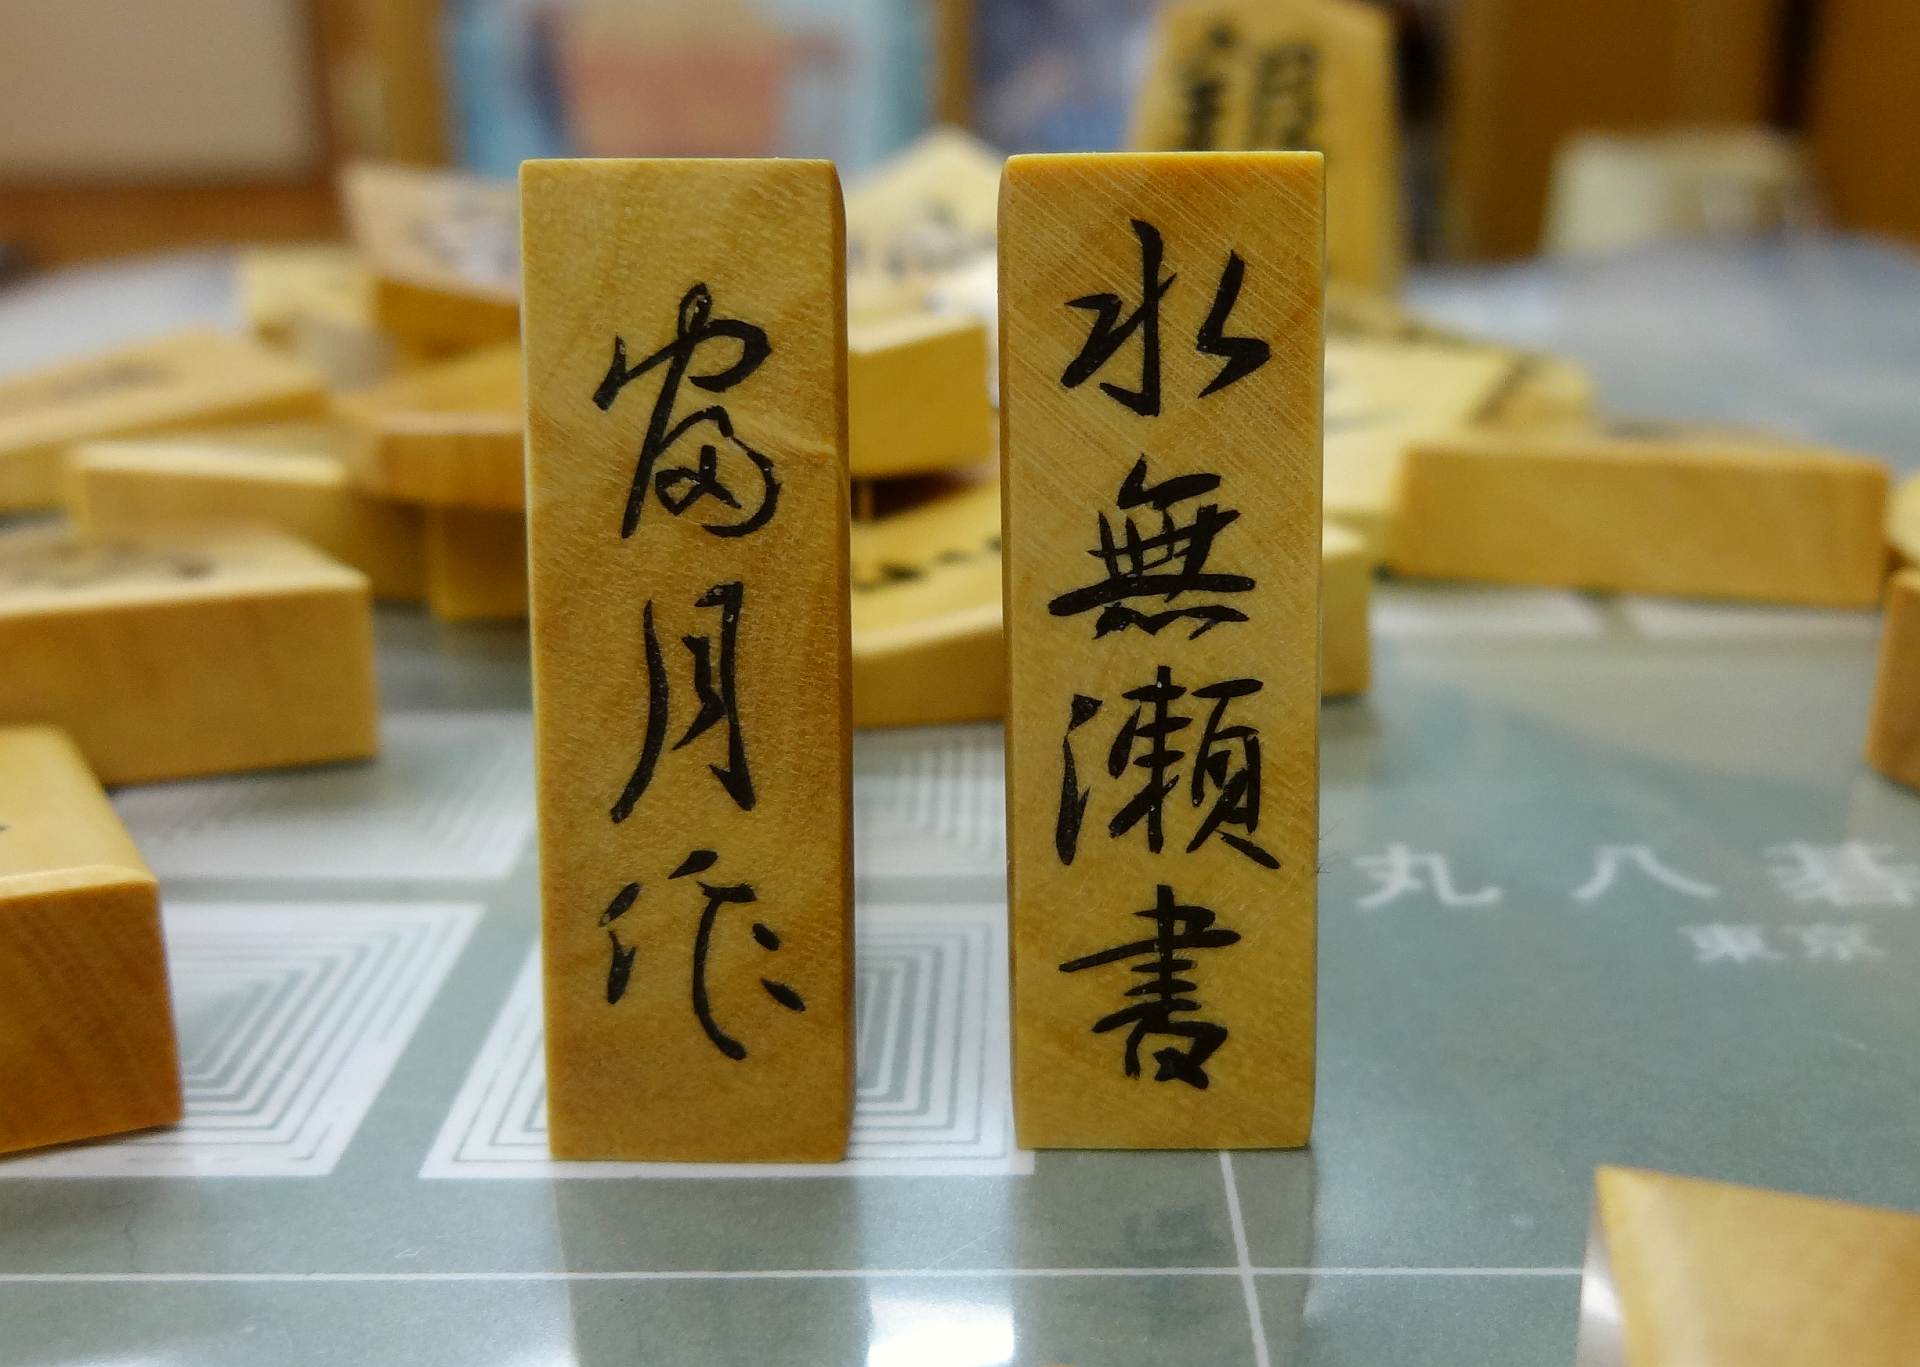 水無瀬書
富月作
丸八碁
東京